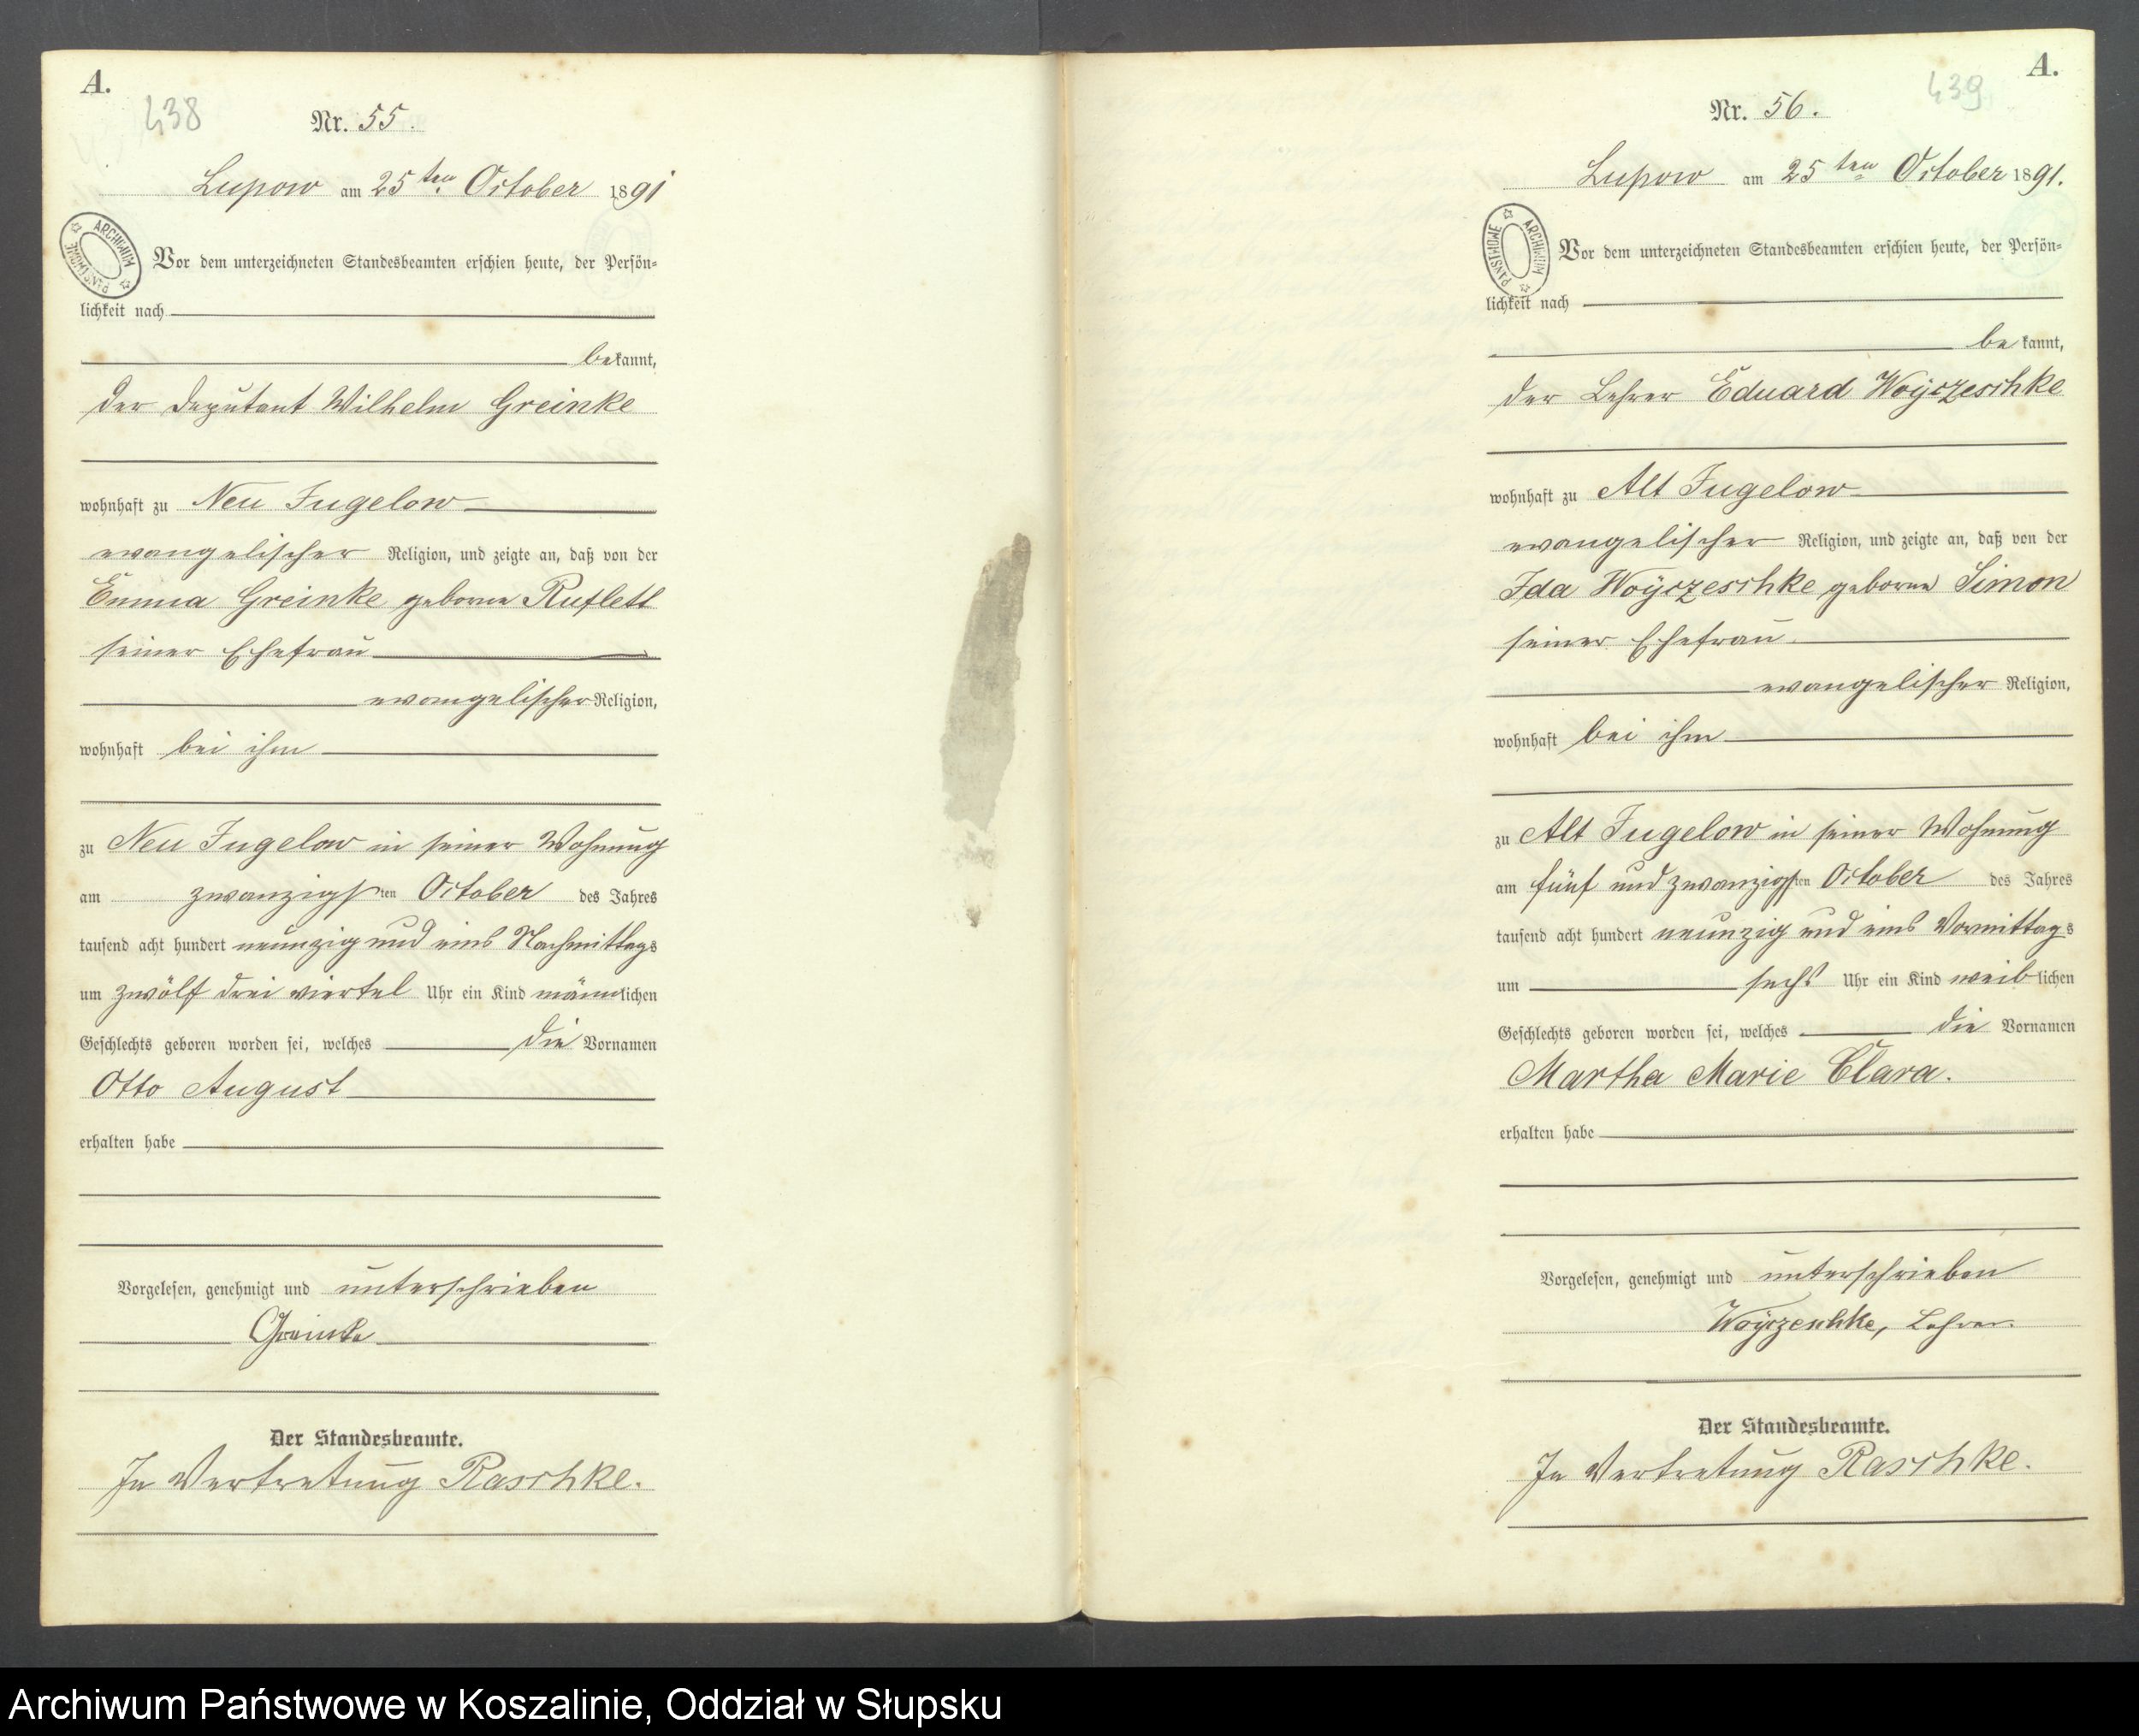 A.
438
Nr. 55.
Lupow am 25ten October 1891
ARCHIWUM PAŃSTWOWE
Vor dem unterzeichneten Standesbeamten erschien heute, der Persön=
lichkeit nach
bekannt,
der Deputant Wilhelm Greinke
wohnhaft zu Neu Jugelow
evangelischer Religion, und zeigte an, daß von der
Emma Greinke geborne Ruflett
seiner Ehefrau
evangelischer Religion,
wohnhaft bei ihm
zu Neu Jugelow in seiner Wohnung
am zwanzigsten October des Jahres
tausend acht hundert neunzig und eins Nachmittags
um zwölf drei viertel Uhr ein Kind männlichen
Geschlechts geboren worden sei, welches die Vornamen
Otto August
erhalten habe
Vorgelesen, genehmigt und unterschrieben
Greinke
Der Standesbeamte.
In Vertretung Raschke.
A.
439
Nr. 56.
Lupow am 25ten October 1891.
ARCHIWUM PAŃSTWOWE
Vor dem unterzeichneten Standesbeamten erschien heute, der Persön=
lichkeit nach
bekannt,
der Lehrer Eduard Woÿczeschke
wohnhaft zu Alt Jugelow
evangelischer Religion, und zeigte an, daß von der
Ida Woÿczeschke geborne Simon
seiner Ehefrau
evangelischer Religion,
wohnhaft bei ihm
zu Alt Jugelow in seiner Wohnung
am fünf und zwanzigsten October des Jahres
tausend acht hundert neunzig und eins Vormittags
um sechs Uhr ein Kind weiblichen
Geschlechts geboren worden sei, welches die Vornamen
Martha Marie Clara.
erhalten habe
Vorgelesen, genehmigt und unterschrieben
Woÿczeschke, Lehrer.
Der Standesbeamte.
In Vertretung Raschke.
Archiwum Państwowe w Koszalinie, Oddział w Słupsku